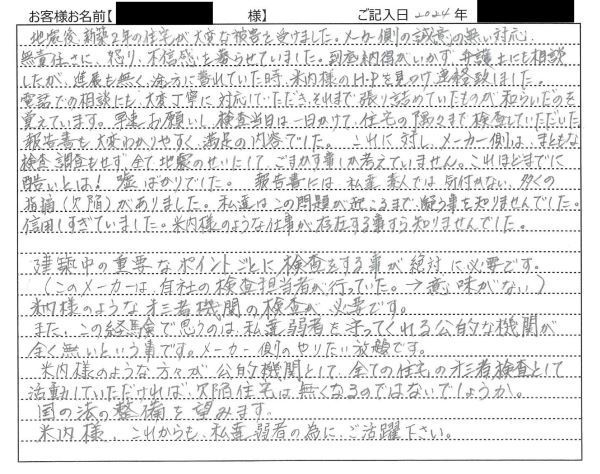 お客様お名前【 様】 ご記入日 2024 年
地震後、新築2年の住宅が大変な被害を受けました。メーカー側の誠意の無い対応、
無責任さに、怒り、不信感を募らせていました。到底納得がいかず、弁護士にも相談
したが、進展も無く、途方に暮れていた時、米内様のH・Pを見つけ連絡致しました。
電話での相談にも、大変丁寧に対応していただき、それまで張り詰めていたものが和らいだのを
覚えています。早速お願いし、検査当日は一日かけて、住宅の隅々まで検査していただいた
報告書も大変わかりやすく、満足の内容でした。これに対し、メーカー側は、まともな
検査調査もせず、全て地震のせいにして、ごまかす事しか考えていません。これほどまでに
酷いとは！嘘ばかりでした。報告書には、私達素人では気付かない、多くの
指摘(欠陥)がありました。私達はこの問題が起こるまで、疑う事を知りませんでした。
信用しすぎていました。米内様のような仕事が存在する事すら知りませんでした。
建築中の重要なポイントごとに検査をする事が絶対に必要です。
(このメーカーは、自社の検査担当者が行っていた。→意味がない)
米内様のような第三者機関の検査が必要です。
また、この経験で思うのは、私達弱者を守ってくれる公的な機関が
全く無いという事です。メーカー側のやりたい放題です。
米内様のような方々が公的機関として、全ての住宅の第三者検査として
活動していただければ、欠陥住宅は無くなるのではないでしょうか。
国の法の整備を望みます。
米内様、これからも、私達弱者の為に、ご活躍下さい。